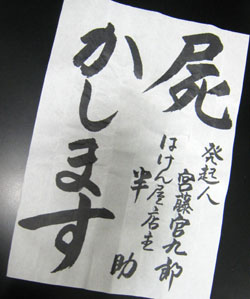 屍
かします
発起人
宮藤官九郎
はけん屋店主
半助